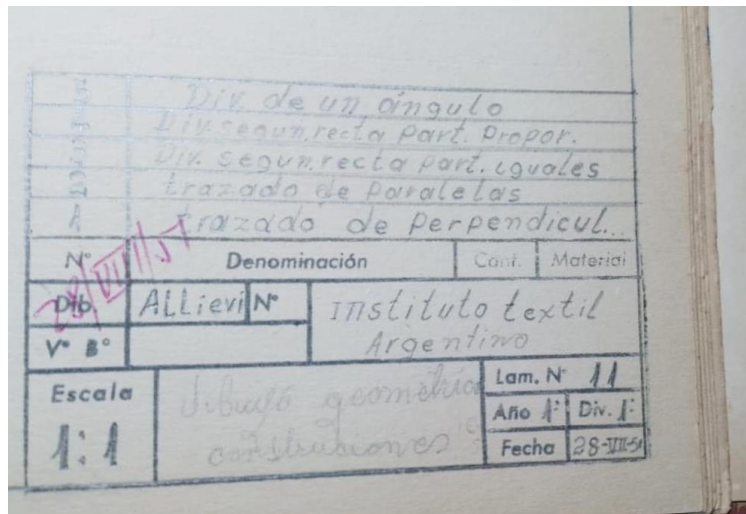 Div. de un ángulo
Div. segun. recta Part. Propor.
Div. segun. recta Part. iguales
trazado de Paralelas
A trazado de Perpendicul.
N° Denominación Cant. Material
28/VIII/51
Dib. ALLievi N° Instituto textil
V° B° Argentino
Escala Dibujo geométrico Lam. N° 11
Año 1° Div. 1°
1:1 construciones Fecha 28-VIII-51